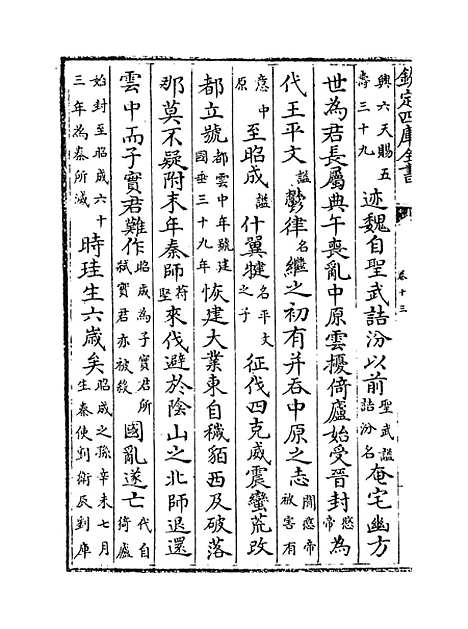 欽定四庫全書
卷十三
興六天賜五壽三十九迹魏自聖武詰汾以前聖武諡詰汾名奄宅幽方
世為君長屬典午喪亂中原雲擾倚廬始受晉封愍帝為
代王平文諡鬱律名繼之初有并吞中原之志聞愍帝被害有
意中原至昭成諡什翼犍名平文之子征伐四克威震蠻荒改
都立號都雲中年號建國垂三十九年恢建大業東自穢貊西及破落
那莫不疑附末年秦師苻堅來伐避於陰山之北師退還
雲中而子實君難作昭成為子實君所弑實君亦被殺國亂遂亡代自倚廬
始封至昭成六十三年為秦所滅時珪生六歳矣昭成之孫辛未七月生秦使劉衛辰劉庫